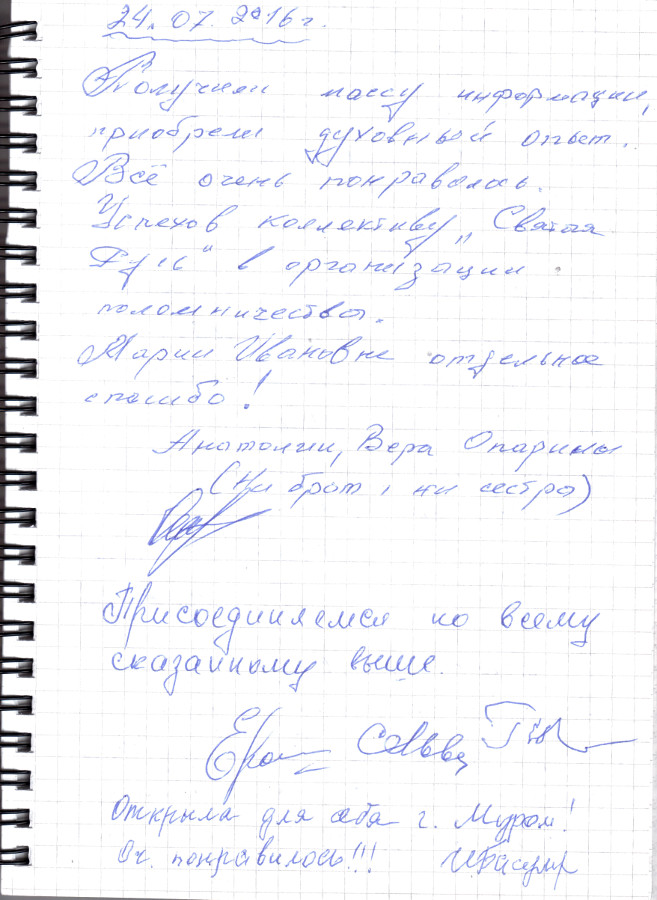 24. 07. 2016 г.
Получили массу информации,
приобрели духовный опыт.
Всё очень понравилось.
Успехов коллективу „Святая
Русь“ в организации
паломничества.
Марии Ивановне отдельное
спасибо!
Анатолий, Вера Опарины
(Ни брат, ни сестра)
Присоединяемся ко всему
сказанному выше.
Открыла для себя г. Муром!
Оч. понравилось!!!